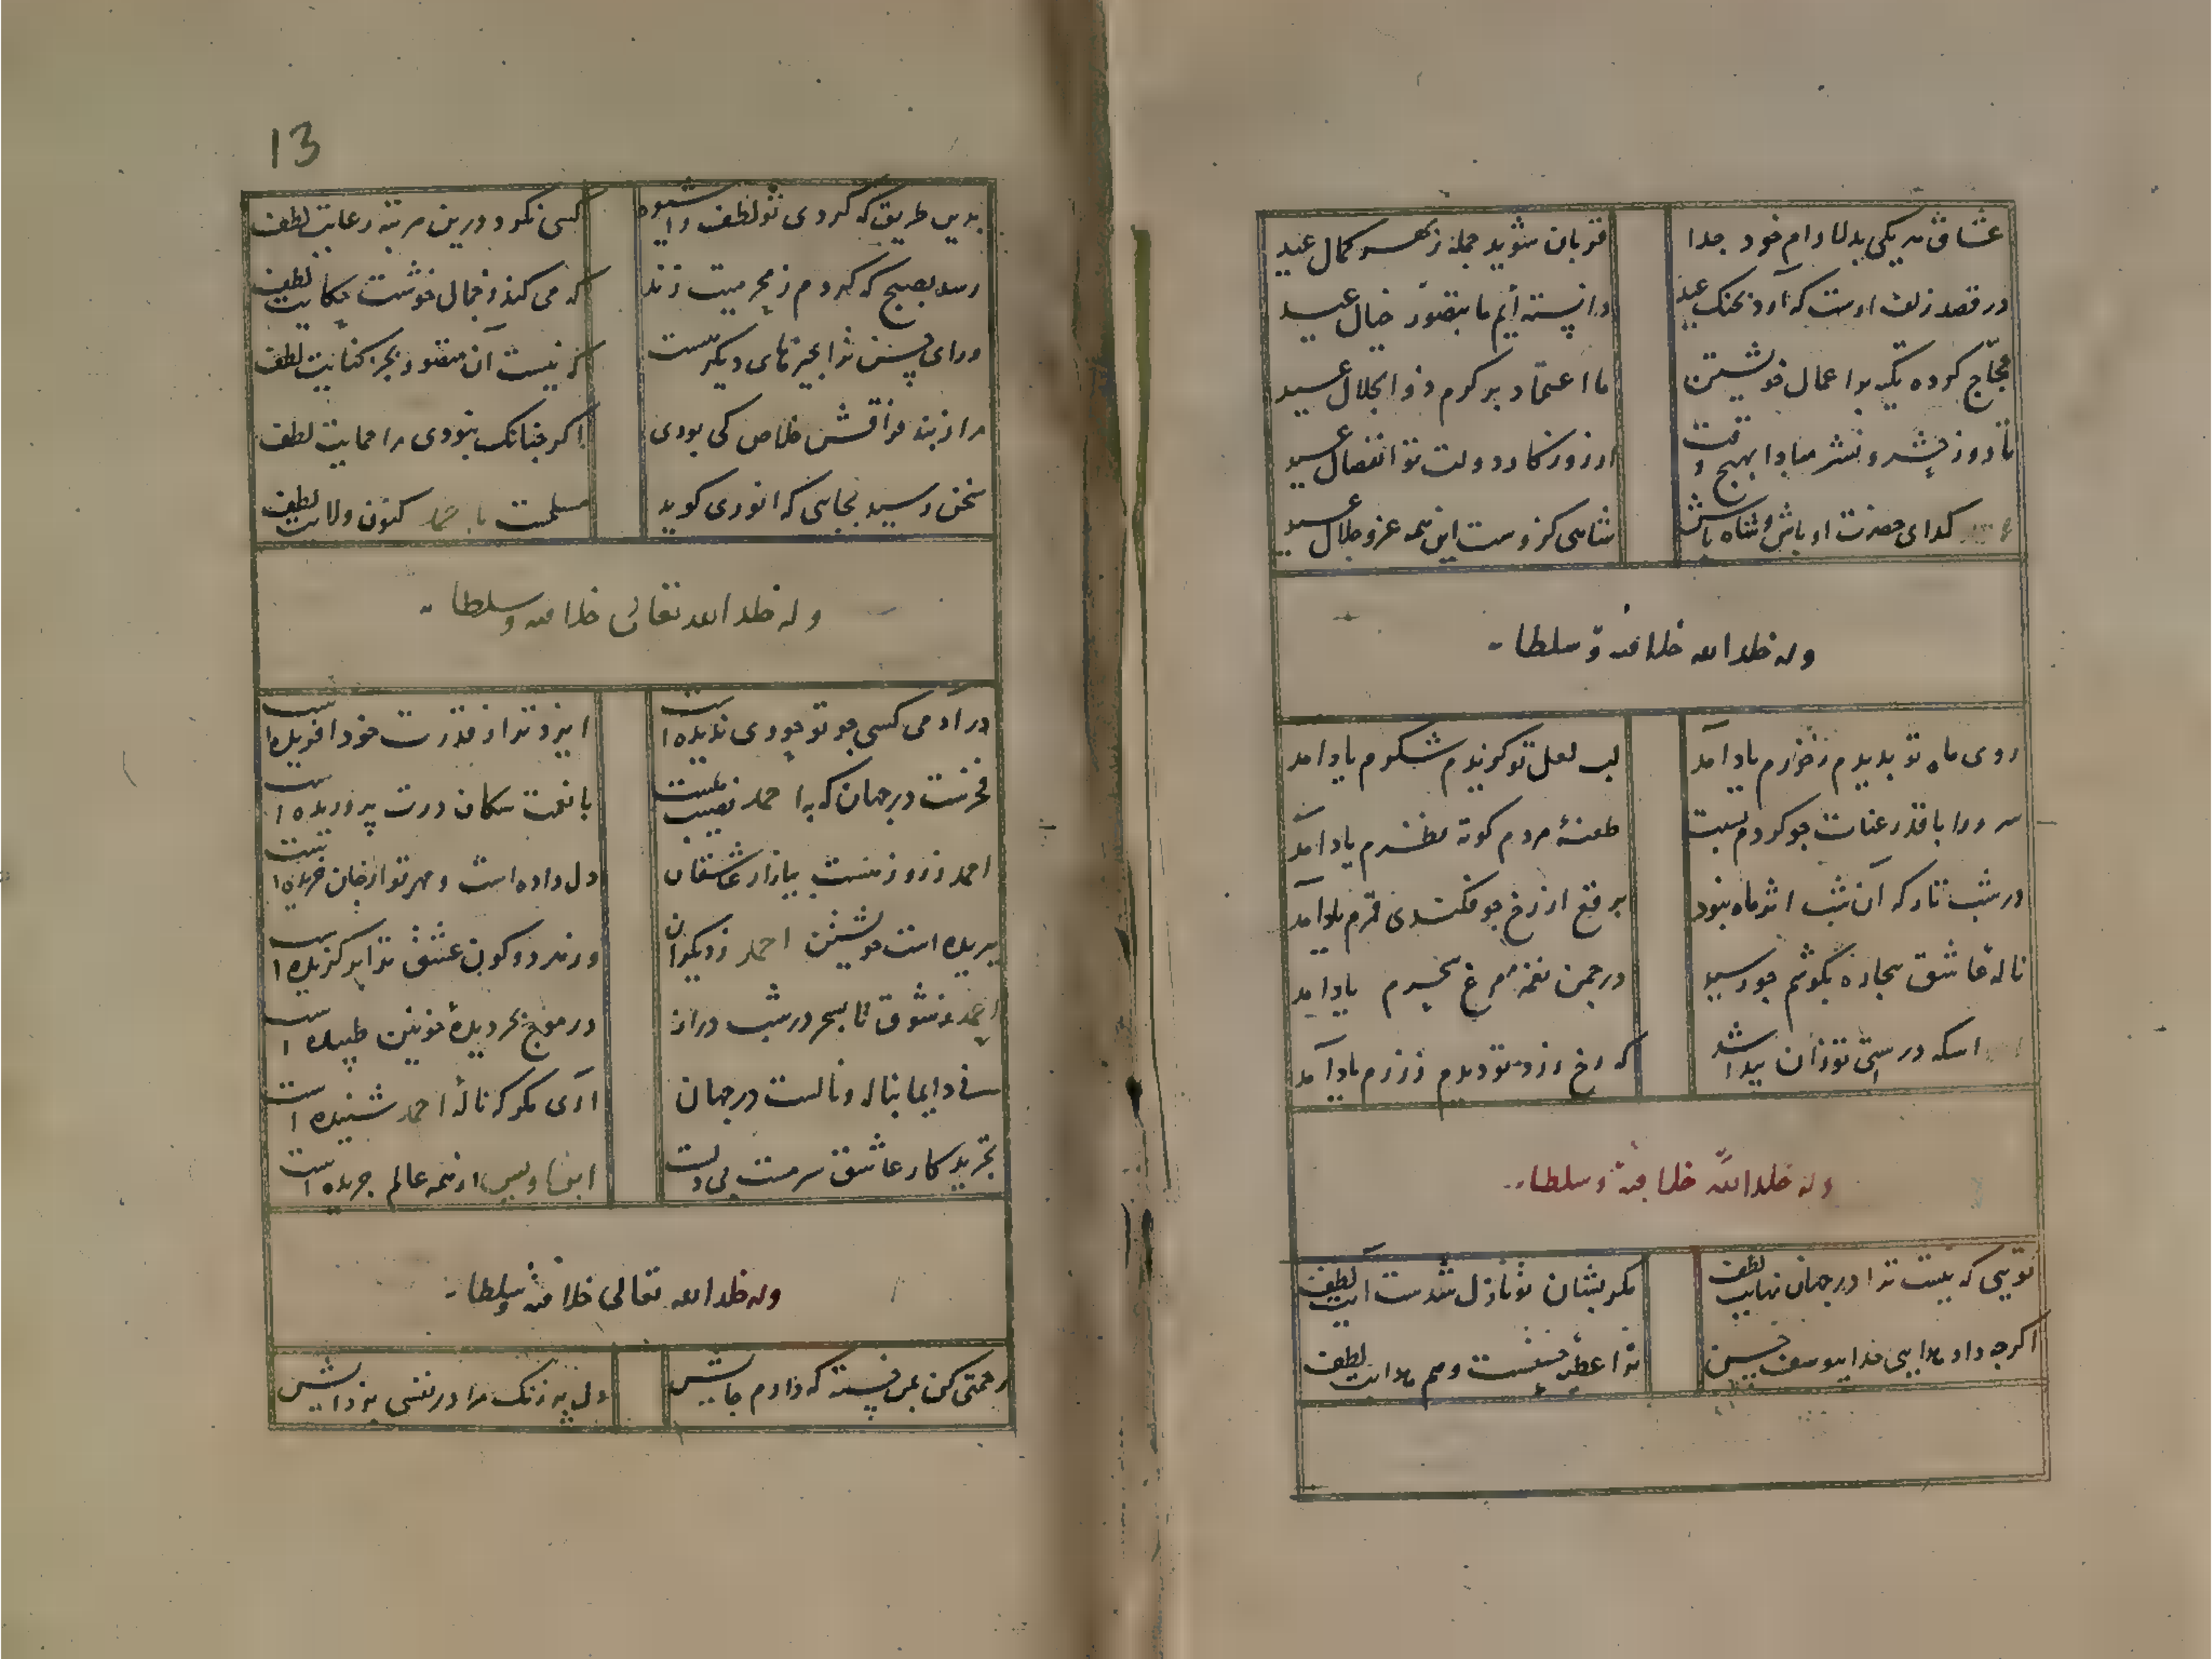 عشاق هر یکی بدلارام خود جدا
قربان شوید جمله زبهر کمال عید
در قصد زلف اوست که آرد بجنک عید
دانسته ایم ما بتصور خیال عید
حجاج کرده تکیه بر اعمال خویشتن
ما اعتماد بر کرم ذو الجلال عید
تا روز حشر و نشر مبادا بهیچ وقت
از روزکار دولت تو انفصال عید
کدای حضرت او باش و شاه باش
شاهی کزوست این همه عز و جلال عید
وله خلد الله خلافته و سلطا
روی ماه تو بدیدم زخورم یاد آمد
لب لعل تو کزیدم شکرم یاد امد
سرو را با قد رعنات جو کردم نسبت
طعنهٔ مردم کوته نظرم یاد آمد
در شب تار که آن شب اثر ماه نبود
برقع از رخ جو فکندی قمرم یاد آمد
ناله عاشق بیجاره بکوشم جو رسید
در جمن نغمه مرغ سحرم یاد امد
که رخ زرد تو دیدم ززرم یاد آمد
وله خلد الله خلافته و سلطا
تویی که نیست ترا در جهان نهایت لطف
مکر بشان تو نازل شدست آیت لطف
اکرجه داد خدا بیوسف حسن
ترا عطیه حسنست و هم لطف
13
بدین طریق که کردی تو لطف را شیوه
کسی نکرد درین مرتبه رعایت لطف
رسد بصبح که کردم زمحرمیت زند
که می کند زجمال خوشت حکایت لطف
ورای حسن ترا جیزهای دیکر هست
که نیست آن متصور بجز کنایت لطف
مرا زبند فراقش خلاص کی بودی
اکر جنانک نبودی مرا حمایت لطف
سخن رسید بجایی که انوری کوید
مسلمست کنون ولایت لطف
وله خلد الله تعالی خلافته و سلطا
در آدمی کسی جو تو جودی ندیده است
ایزد ترا زقدرت خود افریده است
فخرست در جهان که به احمد نصیب نیست
با نعت سکان درت پروریده است
احمد زروز نخست ببازار عاشقان
دل داده است و مهر تو از جان خریده است
ببریده است خویشتن احمد زدیکران
وز هر دو کون عشق ترا بر کزیده است
احمد زشوق تا بسحر در شب دراز
در موج بحر دیدهٔ خونین طپیده است
نی دایما بناله و نالست در جهان
آری مکر که نالهٔ احمد شنیده است
تجرید کار عاشق سرمست بی دلست
از همه عالم جریده است
وله خلد الله تعالی خلافته و سلطا
رحمتی کن بمن خسته که دارم جاش